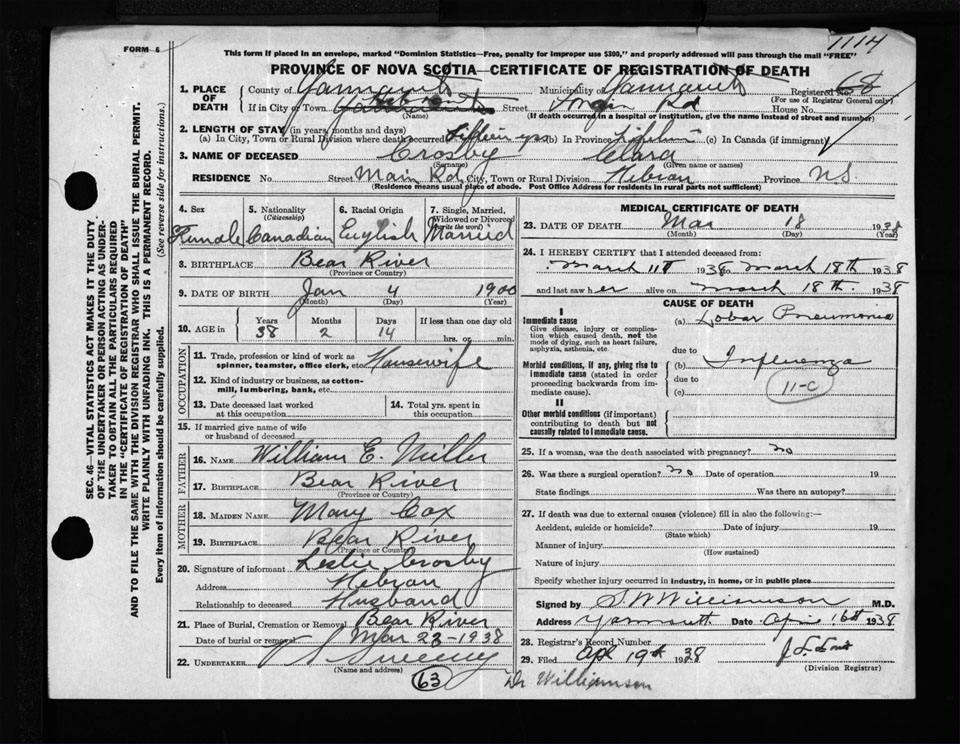 1114
FORM 6
This form if placed in an envelope, marked "Dominion Statistics—Free, penalty for improper use $300," and properly addressed will pass through the mail "FREE"
PROVINCE OF NOVA SCOTIA—CERTIFICATE OF REGISTRATION OF DEATH
1. PLACE OF DEATH County of Yarmouth Municipality of Yarmouth Registered No. 68
(For use of Registrar General only)
If in City of Town Hebron Street Main Rd House No.
(Name) (If death occurred in a hospital or institution, give the name instead of street and number)
2. LENGTH OF STAY (in years, months and days)
(a) In City, Town or Rural Division where death occurred Fifteen yrs (b) In Province (c) In Canada (if immigrant)
3. NAME OF DECEASED Crosby Clara
(Surname) (Given name or names)
RESIDENCE No. Street Main Rd City, Town or Rural Division Hebron Province N.S.
(Residence means usual place of abode. Post Office Address for residents in rural parts not sufficient)
SEC. 46—VITAL STATISTICS ACT MAKES IT THE DUTY
OF THE UNDERTAKER OR PERSON ACTING AS UNDER-
TAKER TO OBTAIN ALL THE PARTICULARS REQUIRED
IN THE "CERTIFICATE OF REGISTRATION OF DEATH"
AND TO FILE THE SAME WITH THE DIVISION REGISTRAR WHO SHALL ISSUE THE BURIAL PERMIT.
WRITE PLAINLY WITH UNFADING INK. THIS IS A PERMANENT RECORD.
Every item of information should be carefully supplied. (See reverse side for instructions.)
4. Sex 5. Nationality (Citizenship) 6. Racial Origin 7. Single, Married, Widowed or Divorced (write the word)
Female Canadian English Married
8. BIRTHPLACE Bear River
(Province or Country)
9. DATE OF BIRTH Jan 4 1900
(Month) (Day) (Year)
10. AGE in Years Months Days If less than one day old
38 2 14 hrs. or min.
OCCUPATION
11. Trade, profession or kind of work as spinner, teamster, office clerk, etc. Housewife
12. Kind of industry or business, as cotton-mill, lumbering, bank, etc.
13. Date deceased last worked at this occupation 14. Total yrs. spent in this occupation
15. If married give name of wife or husband of deceased
FATHER
16. NAME William E. Miller
17. BIRTHPLACE Bear River
(Province or Country)
MOTHER
18. MAIDEN NAME Mary Cox
19. BIRTHPLACE Bear River
(Province or Country)
20. Signature of informant Leslie Crosby
Address Hebron
Relationship to deceased Husband
21. Place of Burial, Cremation or Removal Bear River
Date of burial or removal Mar 22-1938
22. UNDERTAKER Sweeny
(Name and address)
63
MEDICAL CERTIFICATE OF DEATH
23. DATE OF DEATH Mar 18 1938
(Month) (Day) (Year)
24. I HEREBY CERTIFY that I attended deceased from:
March 11th 1938 to March 18th 1938
and last saw her alive on March 18th 1938
CAUSE OF DEATH
I
Immediate cause (a) Lobar Pneumonia
Give disease, injury or complication which caused death, not the mode of dying, such as heart failure, asphyxia, asthenia, etc.
due to
(b) Influenza
Morbid conditions, if any, giving rise to immediate cause (stated in order proceeding backwards from immediate cause).
due to
(c) 11-C
II
Other morbid conditions (if important) contributing to death but not causally related to immediate cause.
25. If a woman, was the death associated with pregnancy? no
26. Was there a surgical operation? no Date of operation 19
State findings Was there an autopsy?
27. If death was due to external causes (violence) fill in also the following:—
Accident, suicide or homicide? Date of injury 19
(State which)
Manner of injury
(How sustained)
Nature of injury
Specify whether injury occurred in industry, in home, or in public place
Signed by S.W. Williamson M.D.
Address Yarmouth Date April 16th 1938
28. Registrar's Record Number
29. Filed Apl 19th 1938
(Division Registrar)
Dr Williamson